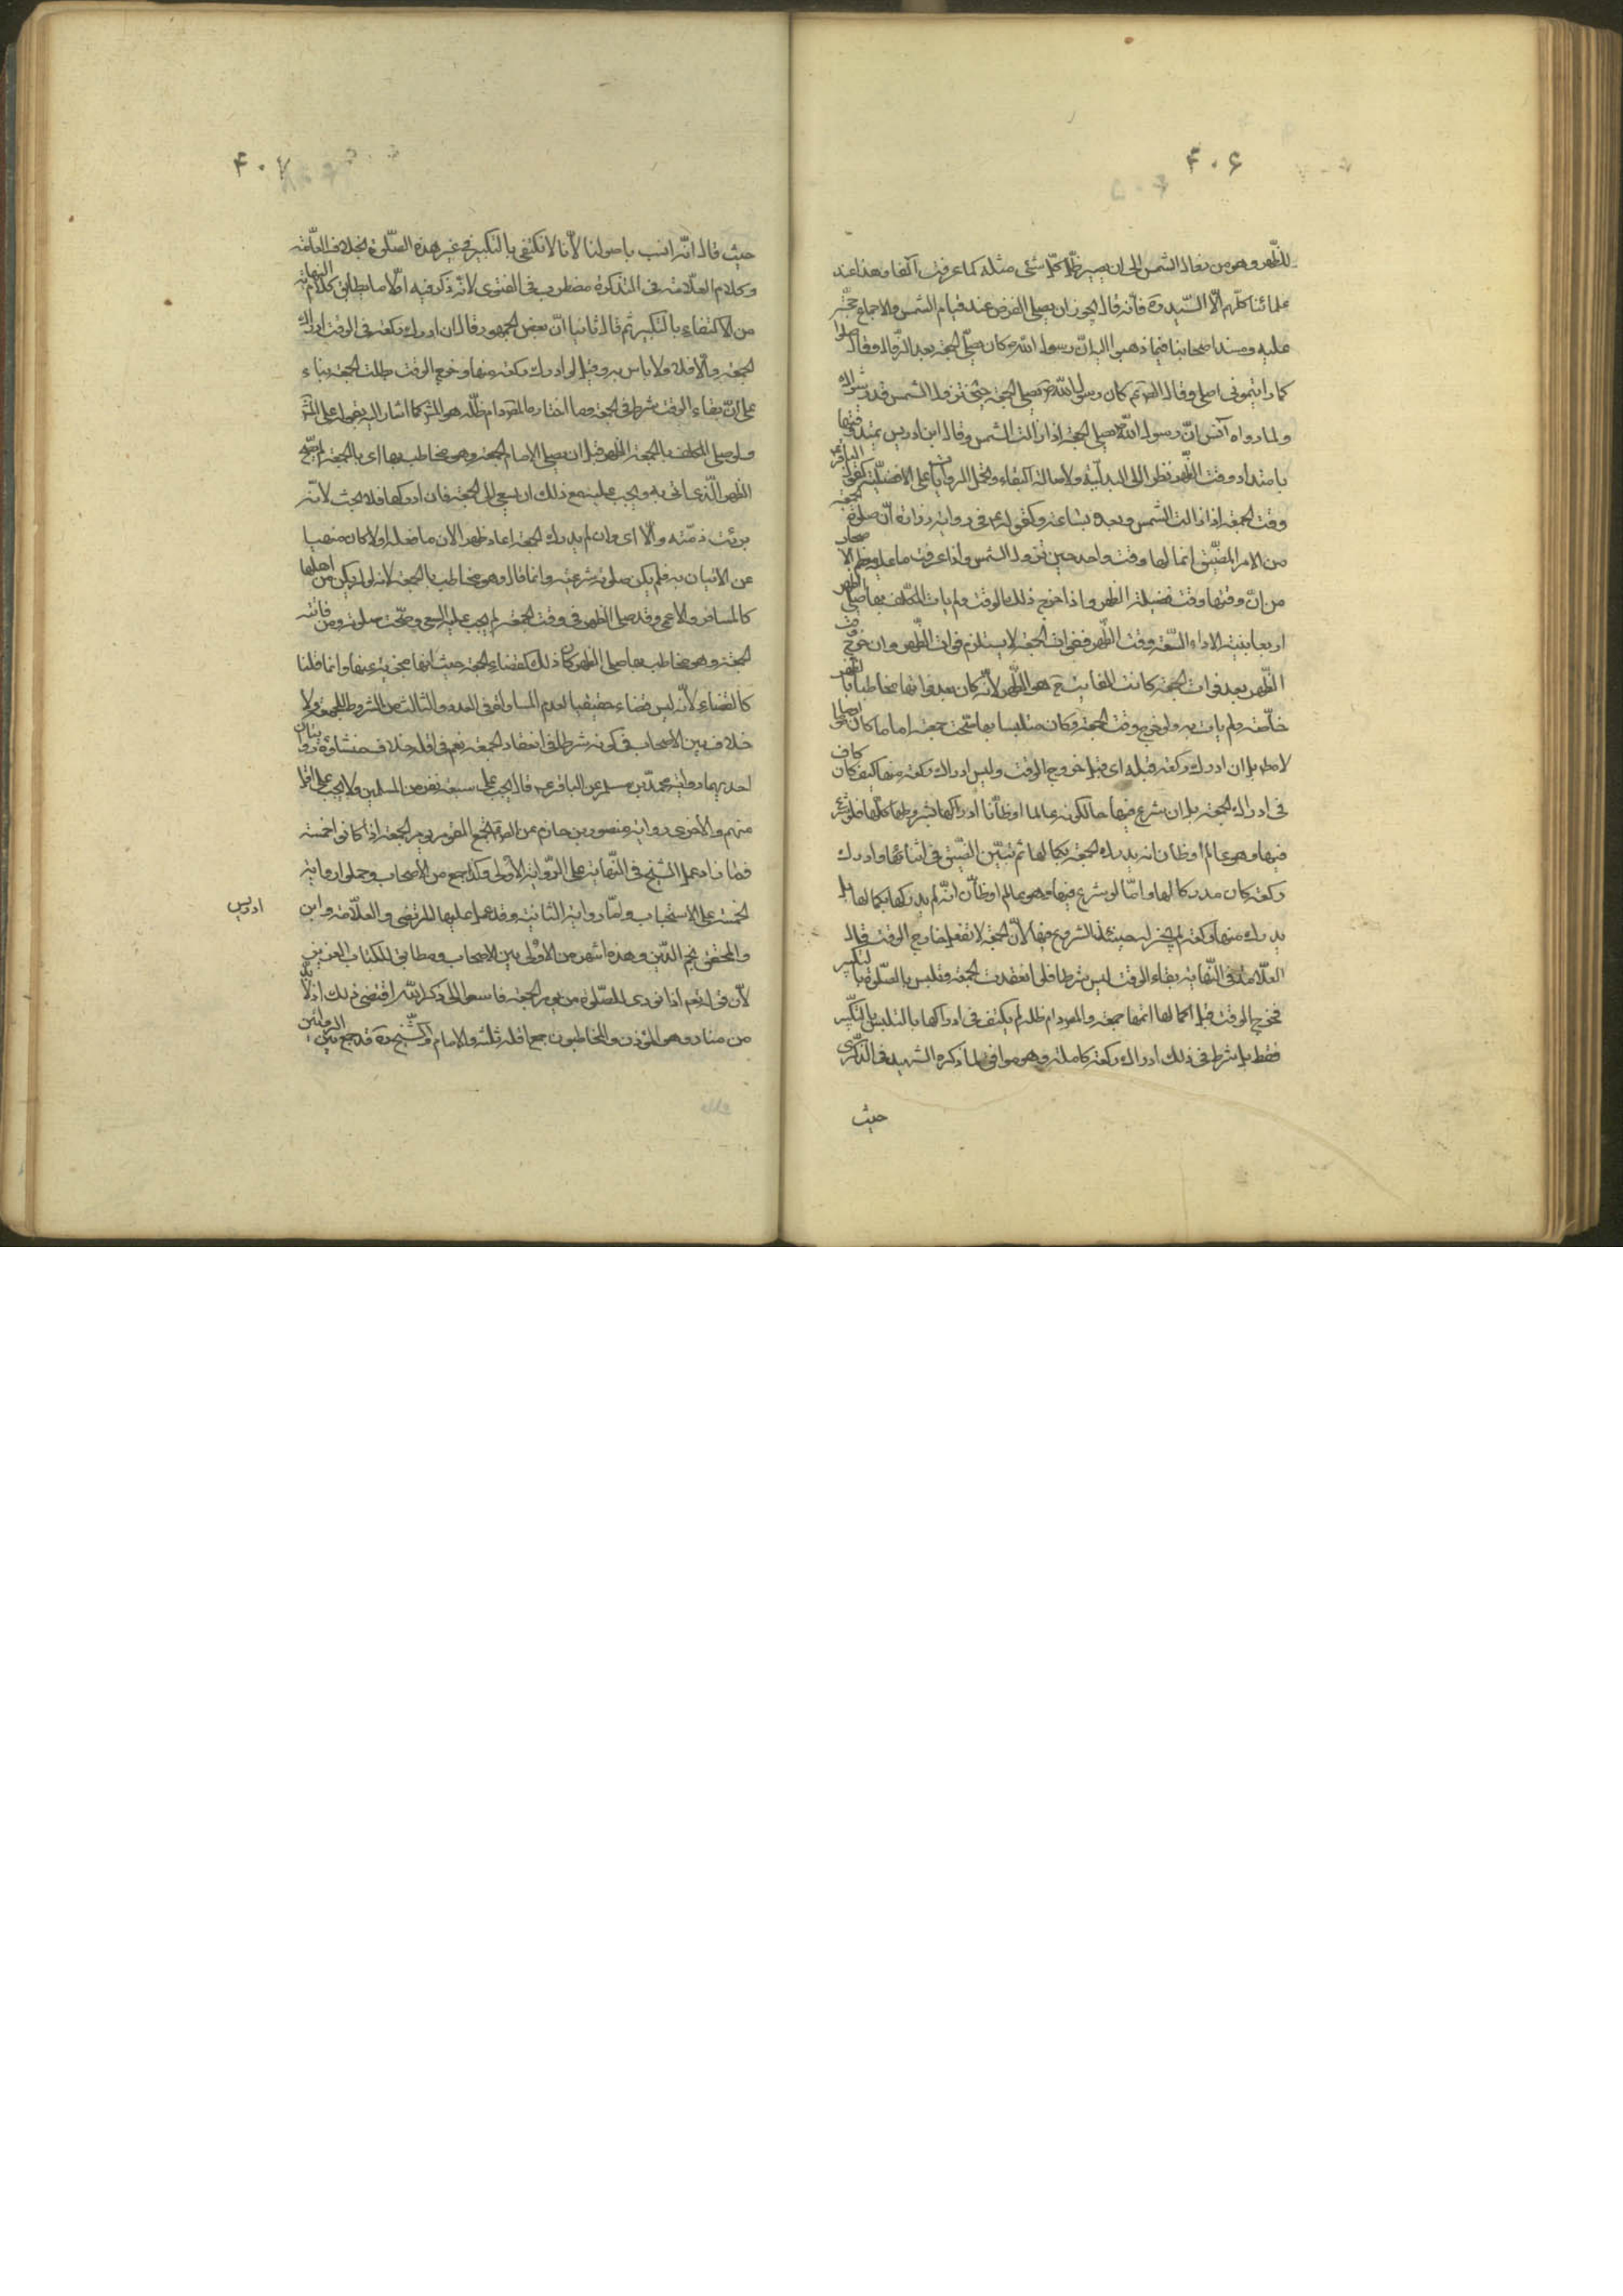 ۴۰۶
للظهر وهو من زوال الشمس الى ان يصير ظل كل شئ مثله كما عرفت آنفا وهذا عند
علمائنا كلهم الا السيد ره فانه قال يجوز ان يصلى الفرض عند قيام الشمس والاجماع حجة
عليه ومستند اصحابنا فيما ذهبوا اليه ان رسول الله ص كان يصلى الجمعة بعد الزوال وقال صلوا
كما رايتمونى اصلى وقال الص ع كان رسول الله ص يصلى الجمعة حين تزول الشمس قدر شراك
ولما رواه انس ان رسول الله ص يصلى الجمعة اذا زالت الشمس وقال ابن ادريس يمتد وقتها
بامتداد وقت الظهر نظرا الى البدلية ولاصالة البقاء وتحمل الروايات على الافضلية كقول الباقر ع
وقت الجمعة اذا زالت الشمس وبعده بساعة وكقوله ع فى رواية زرارة ان صلوة الجمعة
من الامر المضيق انما لها وقت واحد حين تزول الشمس واذا عرفت ما عليه معظم الاصحاب
من ان وقتها وقت فضيلة الظهر واذا خرج ذلك الوقت ولم يات المكلف بها صلى الظهر
اربعا بنية الاداء لسعة وقت الظهر ففوات الجمعة لا يستلزم فوات الظهر وان خرج وقت
الظهر بعد فوات الجمعة كانت الفائتة ح هى الظهر لانه كان بعد فواتها مخاطبا بالظهر
خاصة ولم يات به ولو خرج وقت الجمعة وكان متلبسا بها تمت جمعة اماما كان او مأموما
لا مطلقا بل ان ادرك ركعة قبله اى قبل خروج الوقت وليس ادراك ركعة منها كيف كان كاف
فى ادراك الجمعة بل ان شرع فيها حالكونه عالما او ظانا ادراكها بشروطها كلها فلو شرع
فيها وهو عالم او ظان انه يدرك الجمعة بكمالها ثم تبين الضيق فى اثنائها وادرك
ركعة كان مدركا لها واما لو شرع فيها وهو عالم او ظان انه لم يدركها بكمالها بل
يدرك منها ركعة لم يجز له حينئذ الشروع فيها لان الجمعة لا تفعل خارج الوقت قال
العلامة فى النهاية بقاء الوقت ليس شرطا فلو انعقدت الجمعة وتلبس بالصلوة بالتكبير
فخرج الوقت قبل اكمالها اتمها جمعة والمص دام ظله لم يكتف فى ادراكها بالتلبس بالتكبير
فقط بل شرط فى ذلك ادراك ركعة كاملة وهو موافق لما ذكره الشهيد فى الذكرى
حيث
۴۰۷
حيث قال انه انسب باصولنا لانا لا نكتفى بالتكبير فى غير هذه الصلوة بخلاف العلامة
وكلام العلامة فى التذكرة مضطرب فى الفتوى لانه ذكر فيه اولا ما يطابق كلام النهاية
من الاكتفاء بالتكبير ثم قال ثانيا ان بعض الجمهور قال ان ادرك ركعة فى الوقت ادرك
الجمعة والا فلا ولا باس به وقيل لو ادرك ركعة منها وخرج الوقت بطلت الجمعة بناء
على ان بقاء الوقت شرط فى الجمعة وما اختاره المص دام ظله هو المش كما اشار اليه بقوله على المش
ولو صلى المكلف بالجمعة الظهر قبل ان يصلى الامام الجمعة وهو مخاطب بها اى بالجمعة لم تصح
الظهر الذى اتى به ويجب عليه مع ذلك ان يسعى الى الجمعة فان ادركها فلا بحث لانه
برئت ذمته والا اى وان لم يدرك الجمعة اعاد ظهره لان ما فعله اولا كان منهيا
عن الاتيان به فلم يكن صلوته شرعية وانما قال وهو مخاطب بالجمعة لانه لو لم يكن من اهلها
كالمسافر والاعمى وقد صلى الظهر فى وقت الجمعة لم يجب عليه السعى وصحت صلوته ومن فاتته
الجمعة وهو مخاطب بها صلى الظهر كان ذلك كقضاء الجمعة حيث انها مجزية عنها وانما قلنا
كالقضاء لانه ليس قضاء حقيقيا لعدم المساواة فى العدد والثالث من الشروط للجمعة العدد ولا
خلاف بين الاصحاب فى كونه شرطا فى انعقاد الجمعة نعم فى اقله خلاف منشاؤه روايتان
احديهما رواية محمد بن مسلم عن الباقر ع قال يجب على سبعة نفر من المسلمين ولا يجب على اقل
منهم والاخرى رواية منصور بن حازم عن الص ع يجمع القوم يوم الجمعة اذا كانوا خمسة
فما زاد عمل الشيخ فى النهاية على الرواية الاولى وكذا جمع من الاصحاب وحملوا رواية
الخمسة على الاستحباب واما رواية الثانية وقد عمل عليها المرتضى والعلامة وابن
ادريس
والمحقق نجم الدين وهذه اشهر من الاولى بين الاصحاب ومطابق للكتاب العزيز
لان قوله تعم اذا نودى للصلوة من يوم الجمعة فاسعوا الى ذكر الله اقتضى ذلك اذ لا بد
من مناد وهو المؤذن والمخاطبون جمع اقله ثلثة والامام والشيخ ره قد جمع بين الروايتين